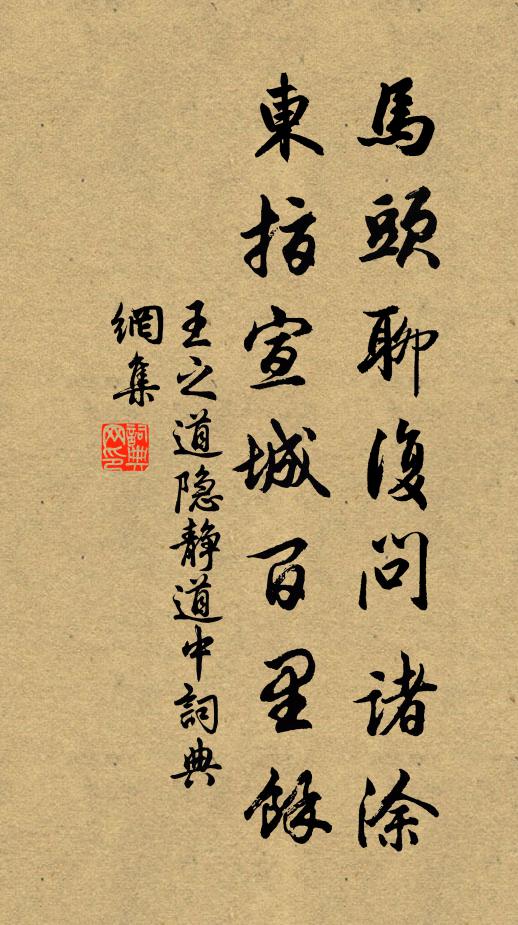 馬頭聊復問諸涂
東指宣城百里餘
王之道隐靜道中詞典
網集
詞典
网印